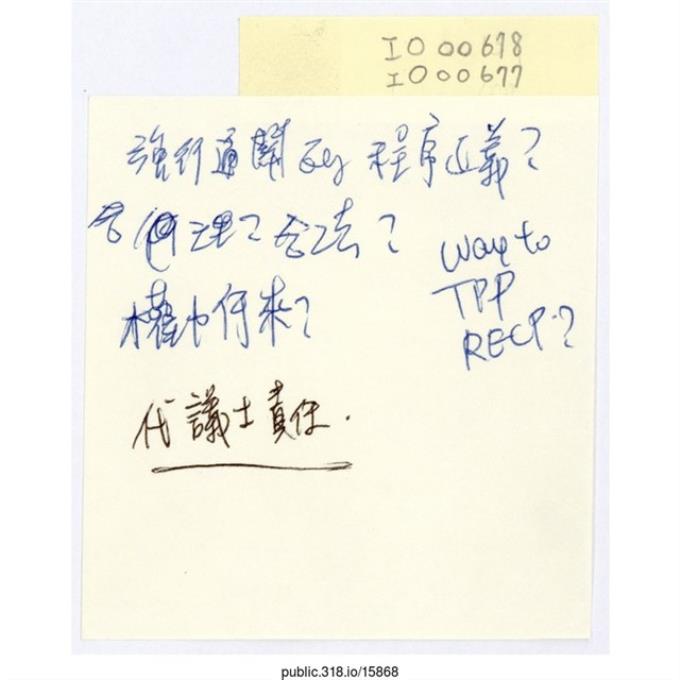 IO 00678
IO 00677
強行通關 的 程序正義？
合理？合法？
權力何來？
Way to
TPP
RECP？
代議士責任.
public.318.io/15868